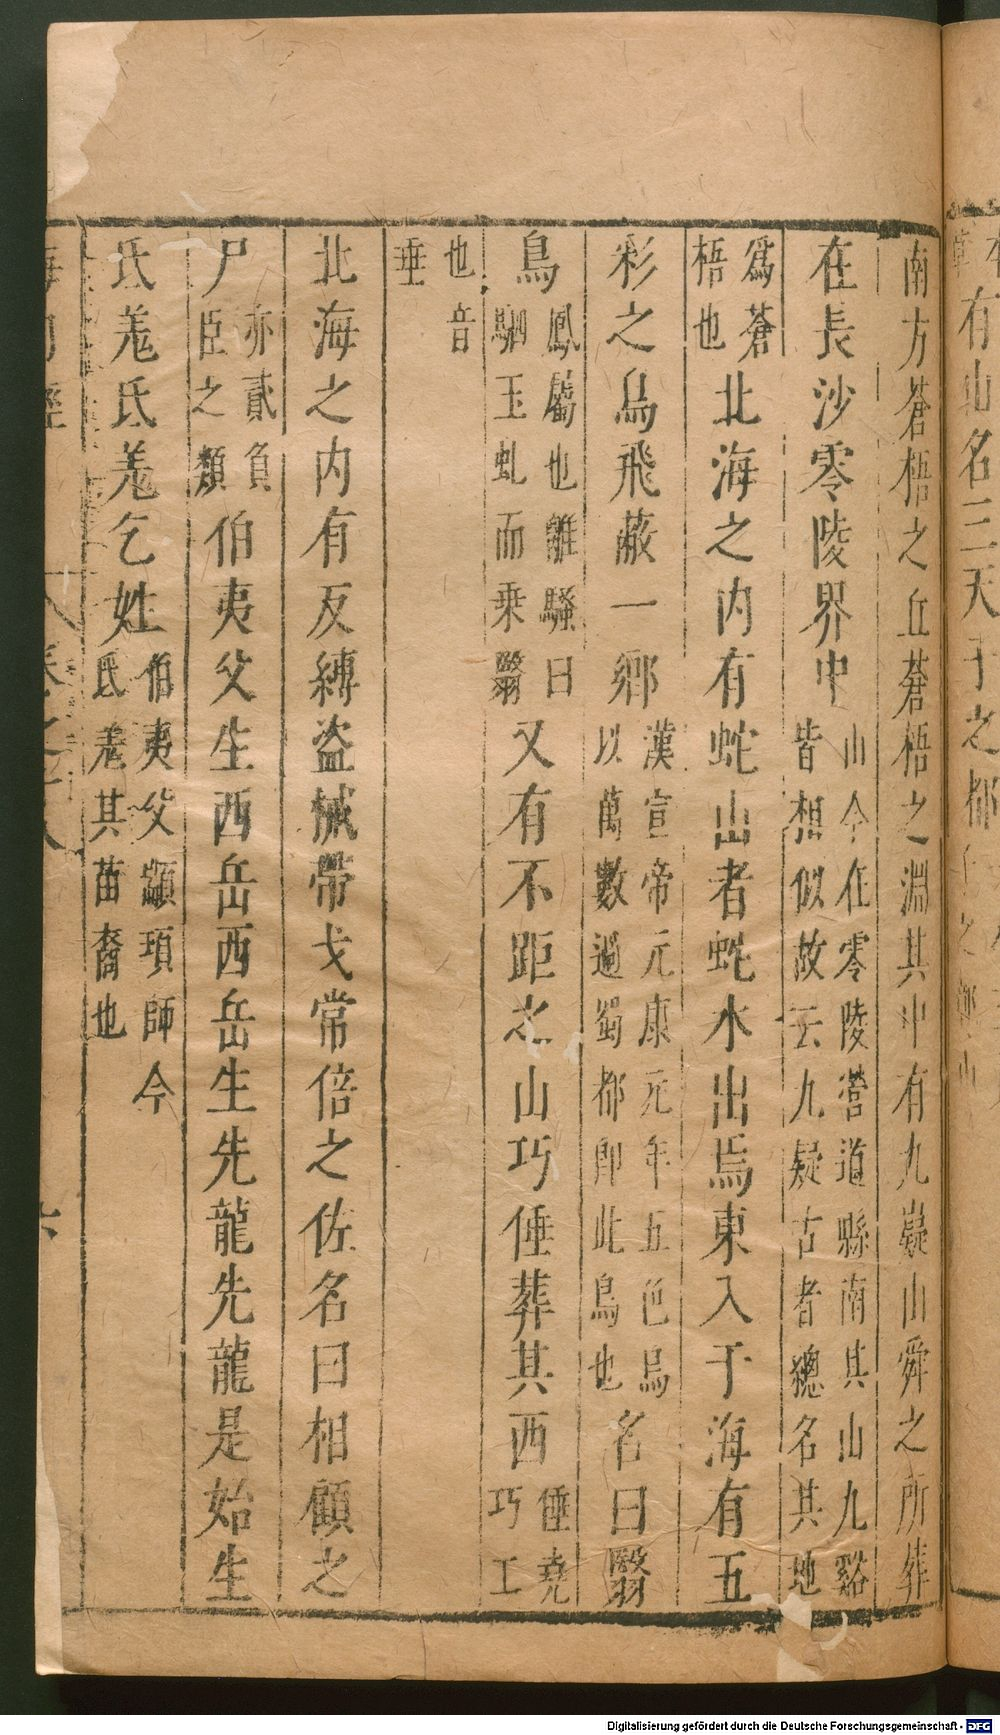 有山名三天子之都
南方蒼梧之丘蒼梧之淵其中有九嶷山舜之所葬
在長沙零陵界中山今在零陵營道縣南其山九谿皆想似故云九疑古者總名其地
爲蒼梧也北海之内有蛇山者蛇水出焉東入于海有五
彩之鳥飛蔽一鄉漢宣帝元康元年五色鳥以萬數過蜀都即此鳥也名曰翳
鳥鳳屬也離騷曰駟玉虬而乗翳又有不距之山巧倕葬其西倕堯巧工
也音垂
北海之内有反縛盗械帶戈常倍之佐名曰相顧之
尸亦貳負臣之類伯夷父生西岳西岳生先龍先龍是始生
氐羌氐羌乞姓伯夷父顓頊師今氐羌其苗裔也